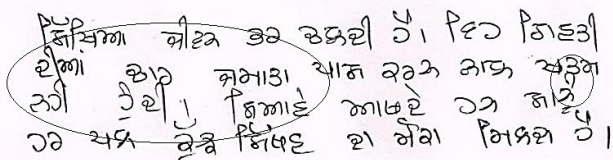 ਸਿੱਖਿਆ ਜੀਵਨ ਭਰ ਚਲਦੀ ਹੈ। ਇਹ ਗਿਣਤੀ
ਦੀਆਂ ਚਾਰ ਜਮਾਤਾਂ ਪਾਸ ਕਰਨ ਨਾਲ ਖਤਮ
ਨਹੀਂ ਹੁੰਦੀ। ਸਿਆਣੇ ਆਖਦੇ ਹਨ ਸਾਨੂੰ
ਹਰ ਪਲ ਕੁੱਝ ਸਿੱਖਣ ਦਾ ਮੌਕਾ ਮਿਲਦਾ ਹੈ।